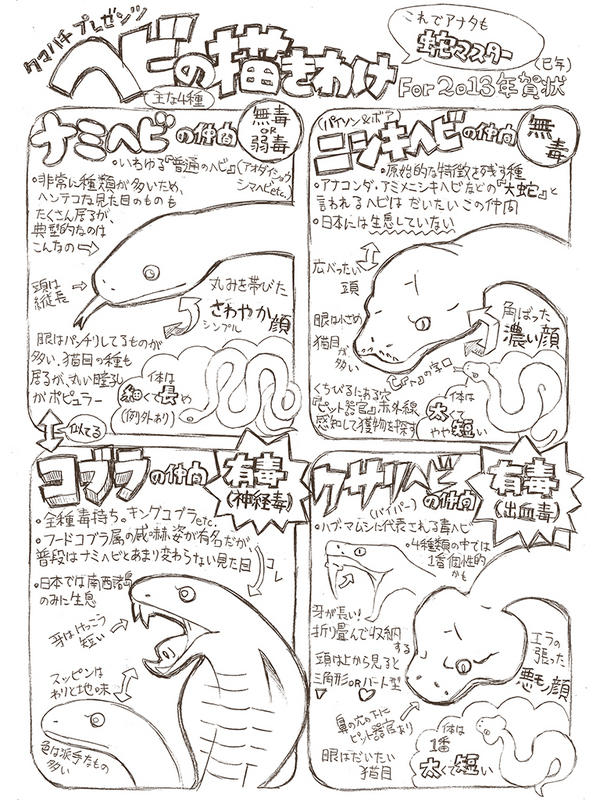 クマバチプレゼンツ
ヘビの描きわけ
主な4種
これでアナタも
蛇マスター
(巳年)
For 2013年賀状
ナミヘビの仲間
無毒
OR
弱毒
・いわゆる『普通のヘビ』(アオダイショウ
シマヘビetc.)
・非常に種類が多いため、
ヘンテコな見た目のものも
たくさん居るが、
典型的なのは
こんなの⇨
頭は
縦長
丸みを帯びた
さわやか顔
シンプル
眼はパッチリしてるものが
多い。猫目の種も
居るが、丸い瞳孔
がポピュラー
体は
細くて長め
(例外あり)
似てる
(パイソン&ボア)
ニシキヘビの仲間
無毒
・原始的な特徴を残す種
・アナコンダ、アミメニシキヘビなどの『大蛇』と
言われるヘビはだいたいこの仲間
・日本には生息していない
広べったい
頭
眼は小さめ
猫目
が
多い
角ばった
濃い顔
「へ」の字口
くちびるにある穴
『ピット器官』赤外線
感知して獲物を探す
体は
太くて
やや短い
コブラの仲間
有毒
(神経毒)
・全種毒持ち。キングコブラetc.
・フードコブラ属の威嚇姿が有名だが、
普段はナミヘビとあまり変わらない見た目
コレ
・日本では南西諸島
のみに生息
牙はけっこう
短い
スッピンは
わりと地味
色は派手なもの
多い
クサリヘビの仲間
(バイパー)
有毒
(出血毒)
・ハブ、マムシに代表される毒ヘビ
・4種類の中では
1番個性的
かも
牙が長い!
折り畳んで収納
する
頭は上から見ると
三角形ORハート型
エラの
張った
悪モノ顔
鼻の穴の下に
ピット器官あり
眼はだいたい
猫目
体は
1番
太くて短い